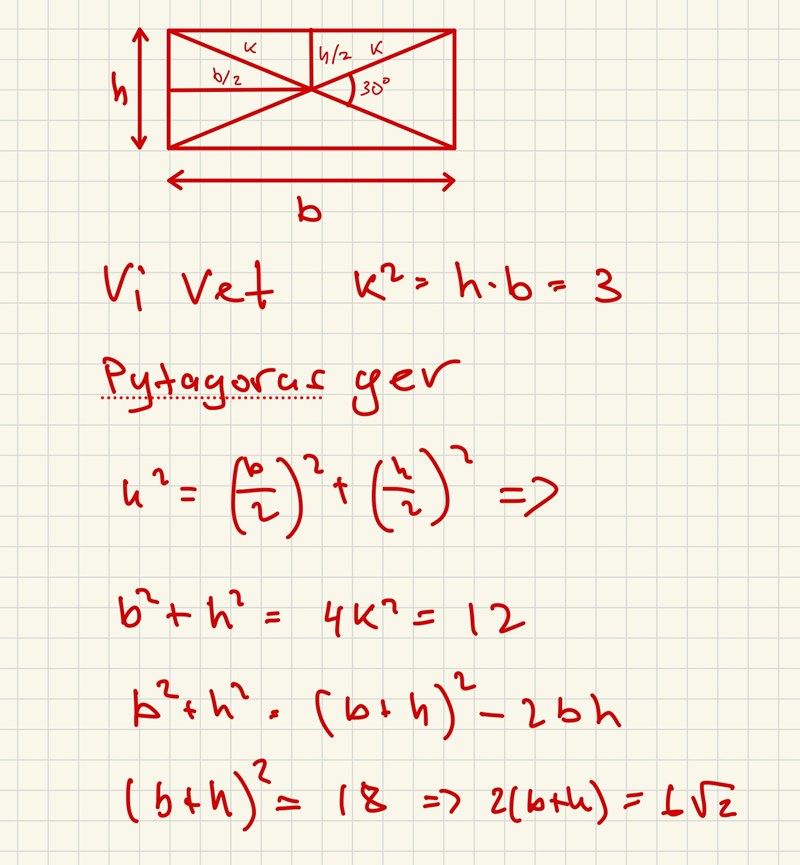 k
h/2
k
b/2
30°
h
b
Vi Vet k² = h·b = 3
Pytagoras ger
k² = (b/2)² + (h/2)² =>
b² + h² = 4k² = 12
b² + h² = (b+h)² - 2bh
(b+h)² = 18 => 2(b+h) = 6√2